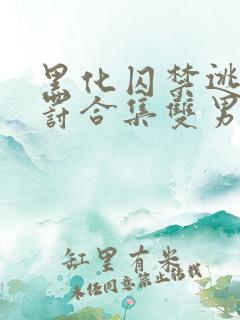 黑化囚禁逃
罰合集雙男
缸里有米
未经同意禁止转载